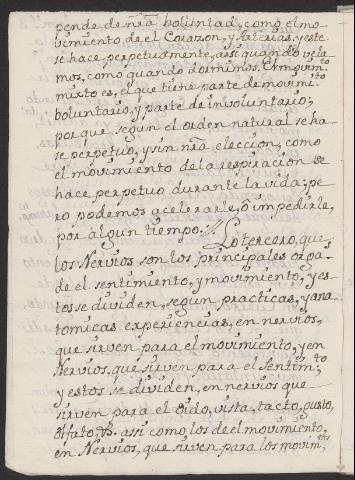 pende de nrã boluntad, como el mo-
vimiento de el Corazon, y Arterias, y este
se hace perpetuamente, assi quando vela
mos, como quando dormimos. El movim.to
mixto es, el que tiene parte de movim.to
boluntario, y parte de involuntario;
porque segun el orden natural se ha-
se perpetuo, y sin nrã eleccion, como
el movimiento de la respiracion se
hace perpetuo durante la vida; pe
ro podemos acelerarle, ô impedirle,
por algun tiempo.// Lo tercero, que
los Nervios son los principales orga-
de el sentimiento, y movimiento, y es-
tos se dividen, segun practicas, y ana
tomicas experiencias, en nervios,
que sirven para el movimiento, y en
Nervios, que sirven para el Sentim.to
y estos se dividen, en nervios que
sirven para el oido, vista, tacto, gusto,
olfato, &. assi como los de el movimiento,
en Nervios, que sirven para los movim.tos